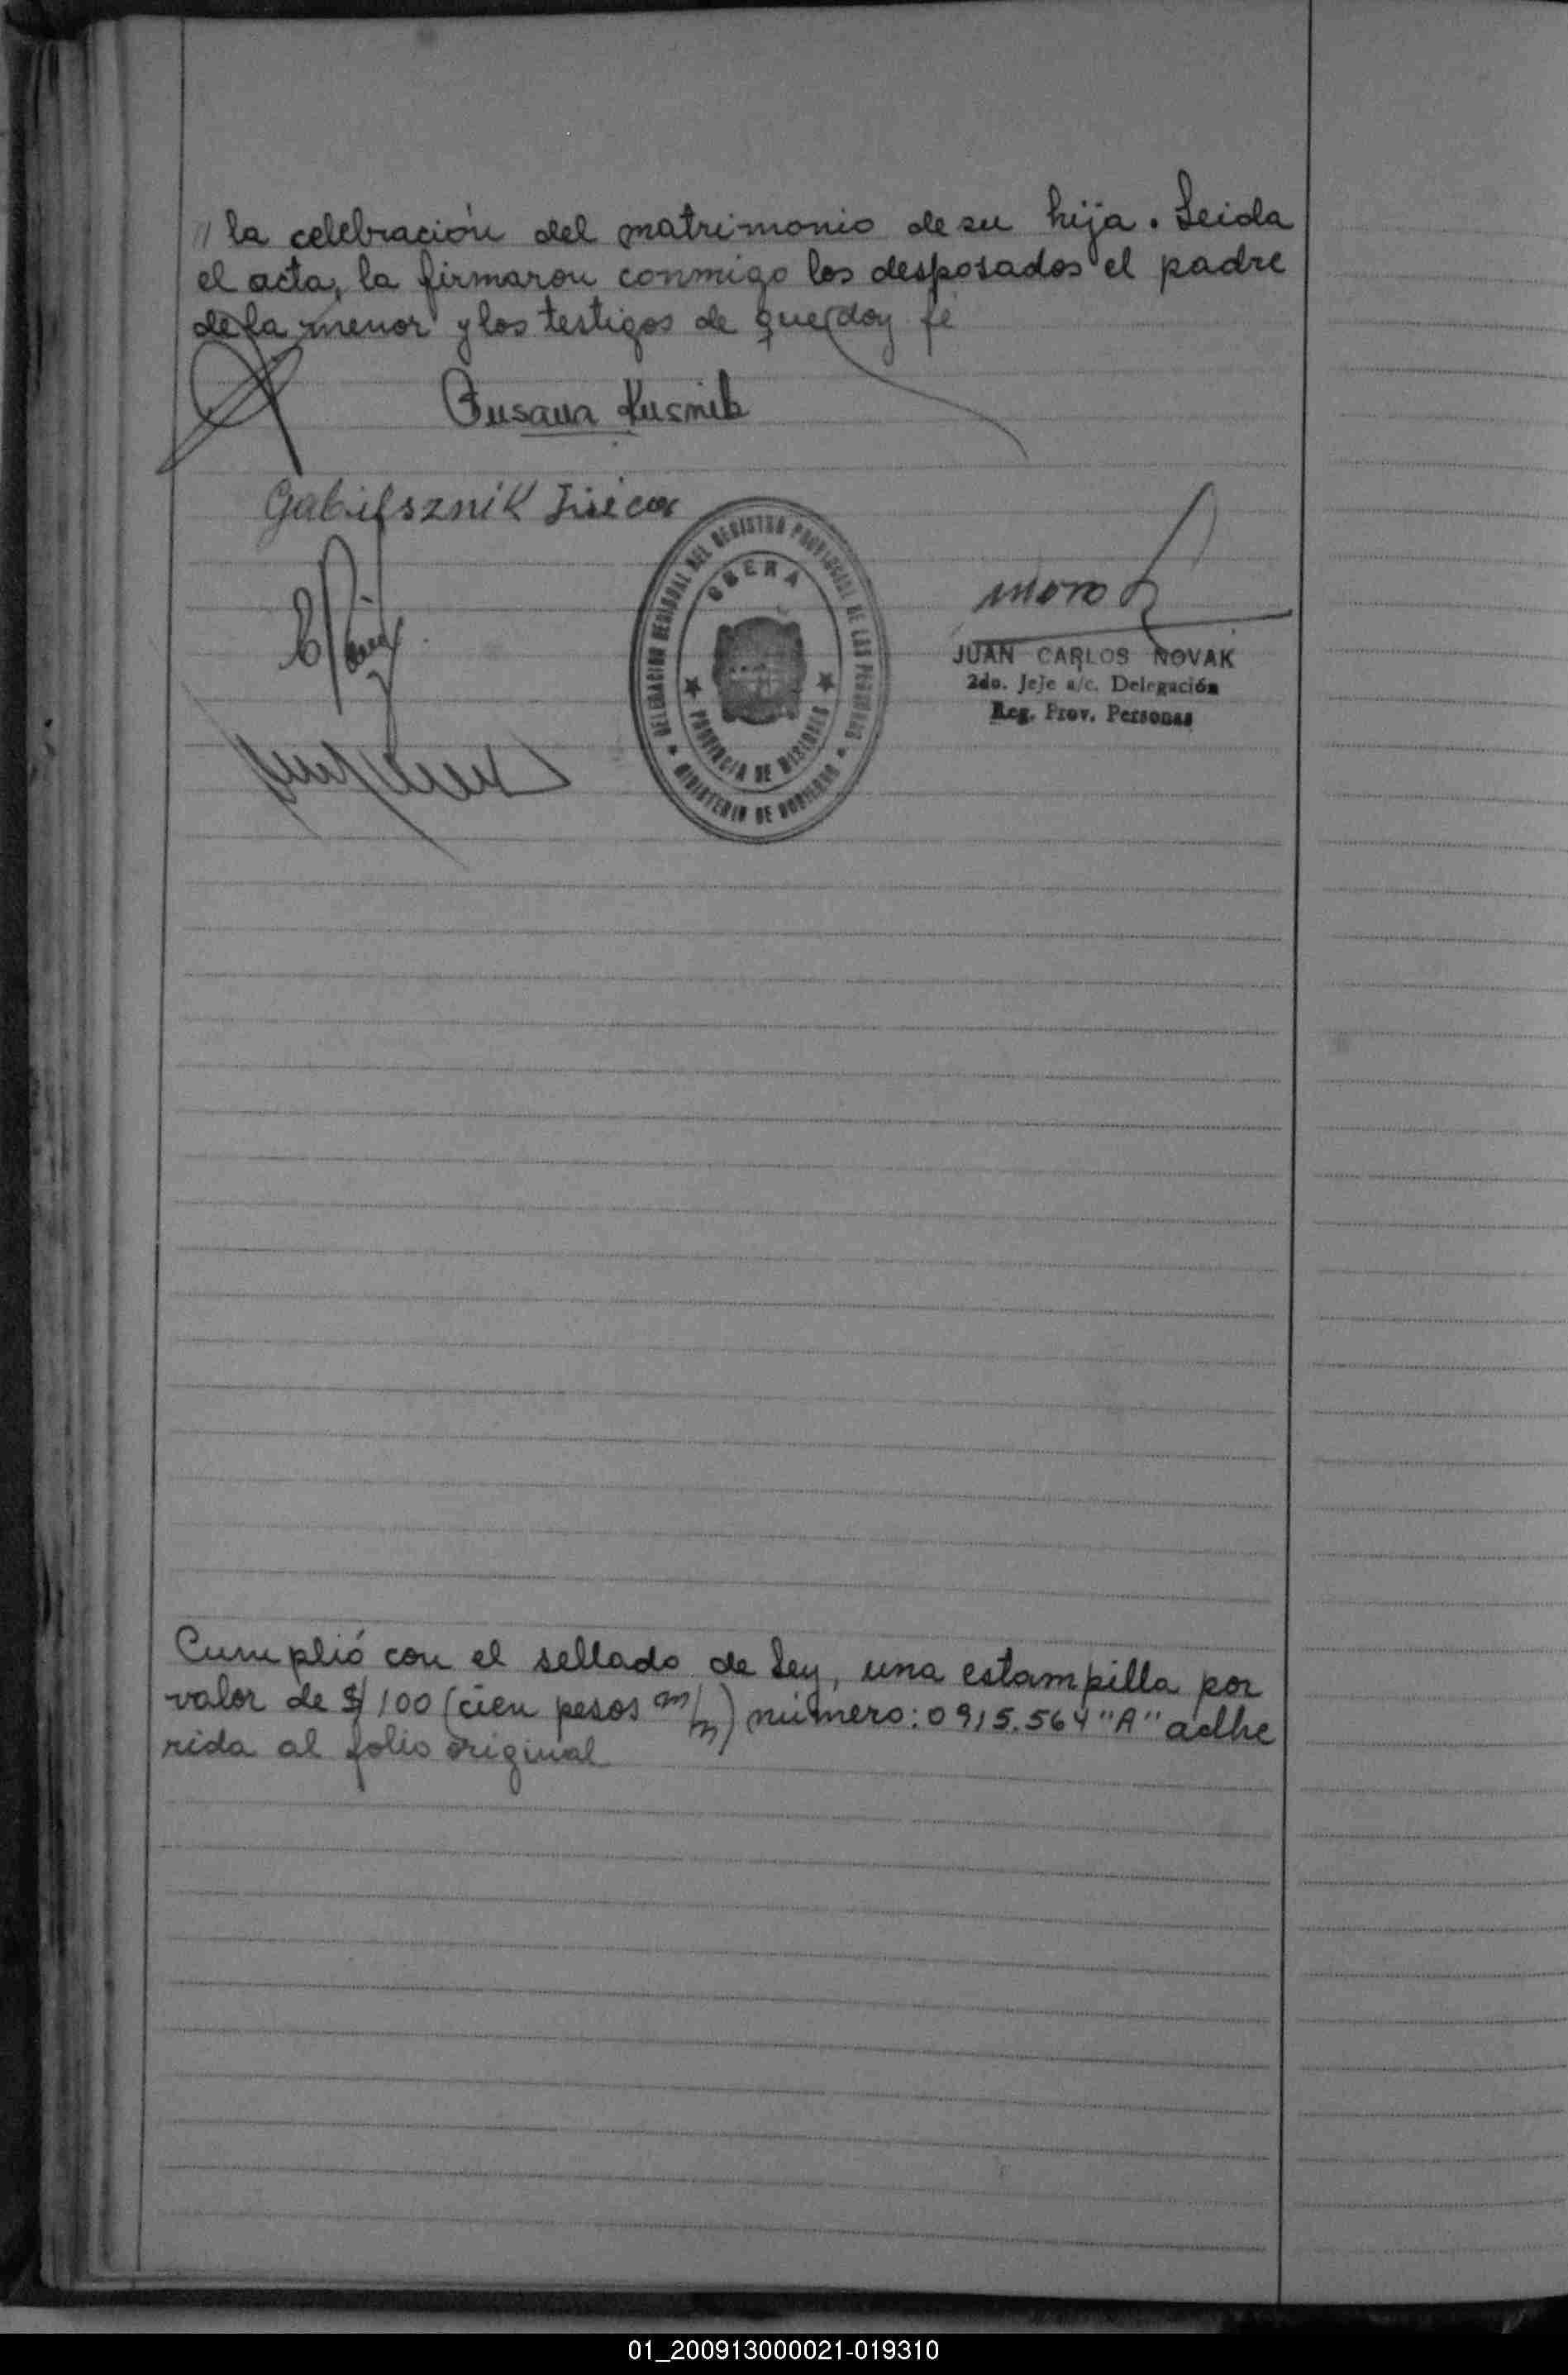 // la celebración del matrimonio de su hija. Leida
el acta, la firmaron conmigo los desposados el padre
de la menor y los testigos de que doy fé
Susana Kusnik
DELEGACION REGIONAL DEL REGISTRO PROVINCIAL DE LAS PERSONAS
OBERA
PROVINCIA DE MISIONES
MINISTERIO DE GOBIERNO
JUAN CARLOS NOVAK
2do. Jefe a/c. Delegación
Reg. Prov. Personas
Cumplió con el sellado de Ley, una estampilla por
valor de $ 100 (cien pesos m/n) número: 0915.564 "A" adhe
rida al folio original
01_200913000021-019310